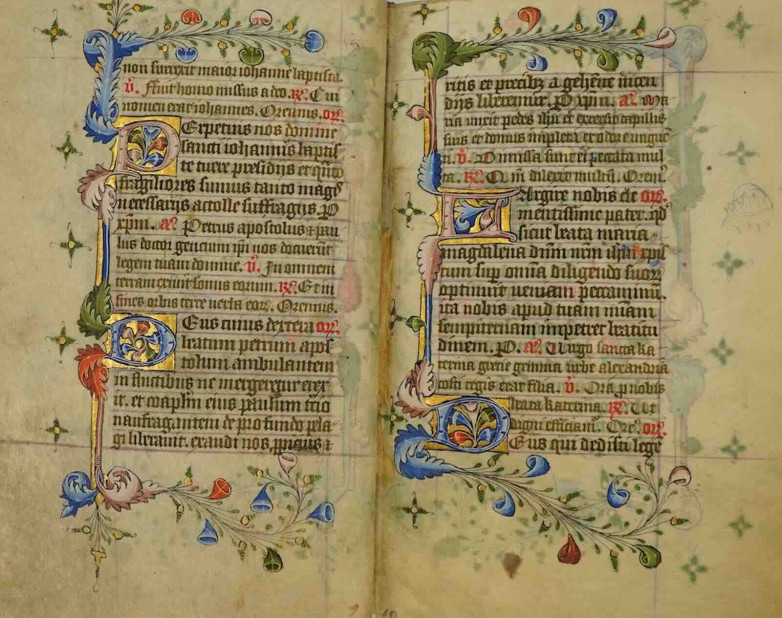 non surrexit maior iohanne baptista.
V. Fuit homo missus a deo. R. Cui
nomen erat iohannes. Oremus. or.
Perpetuis nos domine
sancti iohannis baptis
te tuere presidijs et quo
fragiliores sumus tanto magis
necessarijs attolle suffragijs. P
xpm. a. Petrus apostolus et pau
lus doctor gencium ipsi nos docuerunt
legem tuam domine. V. In omnem
terram exiuit sonus eorum. R. Et in
fines orbis terre uerba eor. Oremus.
Deus cuius dextera or.
beatum petrum apos
tolum ambulantem
in fluctibus ne mergeretur erex
it. et coaplm eius paulum tercio
naufragantem de profundo pela
gi liberauit. exaudi nos propicius et
ritis et precibz a gehenne incen
dijs liberemur. P xpm. a. Ma
ria unxit pedes ihu et extersit capillis
suis et domus impleta ex odore unguen
ti. V. Dimissa sunt ei peccata mul
ta. R. Qm dilexit multum. Orem.
Largire nobis cle or.
mentissime pater. qd
sicut beata maria
magdalena dnm nrm ihm xpi
tum sup omnia diligendo suor
optinuit ueniam peccaminu.
ita nobis apud tuam miam
sempiternam impetret beatitu
dinem. P. a. Uirgo sancta ka
terina grecie gemma urbe alexandria
costi regis erat filia. V. Ora p nobis
beata katerina. R. Ut
digni efficiam. Ore. or.
Deus qui dedisti lege